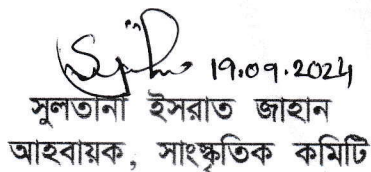 19.09.2024
সুলতানা ইসরাত জাহান
আহবায়ক, সাংস্কৃতিক কমিটি